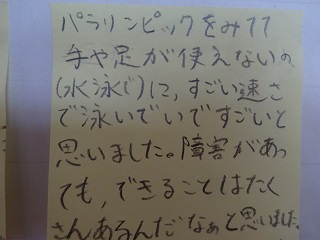 パラリンピックをみてて
手や足が使えないの
(水泳で)に、すごい速さ
で泳いでいですごいと
思いました。障害があっ
ても、できることはたく
さんあるんだなぁと思いました。